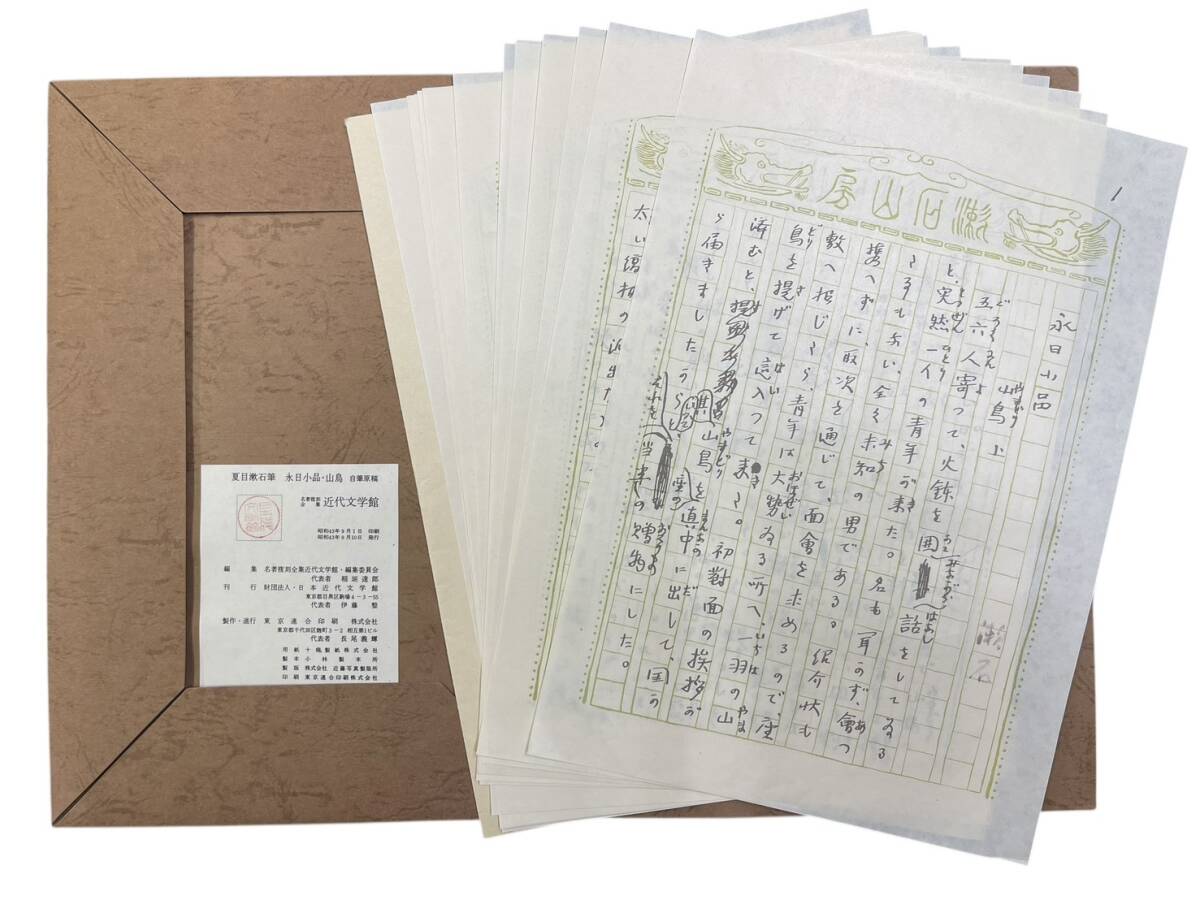 漱石山房
1
永日小品
山鳥 上
漱石
五六人寄って、火鉢を囲みながら話をしてゐる
と、突然一人の青年が来た。名も聞かず、會つ
た事もない、全く未知の男である。紹介状も
携へずに、取次を通じて、面會を求めるので、座
敷へ招じたら、青年は大勢ゐる所へ、一羽の山
鳥を提げて這入つて来た。初對面の挨拶が
済むと、其山鳥を座の真中に出して、国か
ら届きましたからと、それを当座の贈物にした。
夏目漱石筆 永日小品・山鳥 自筆原稿
名著複刻全集 近代文学館
昭和43年9月1日 印刷
昭和43年9月10日 発行
編集 名著複刻全集近代文学館・編集委員会
代表者 稲垣達郎
刊行 財団法人・日本近代文学館
東京都目黒区駒場4-3-55
代表者 伊藤整
製作・進行 東京連合印刷 株式会社
東京都千代田区麹町3-2 相互第1ビル
代表者 長尾義輝
用紙 十條製紙株式会社
製本 小林製本所
製版 株式会社 近藤写真製版所
印刷 東京連合印刷株式会社